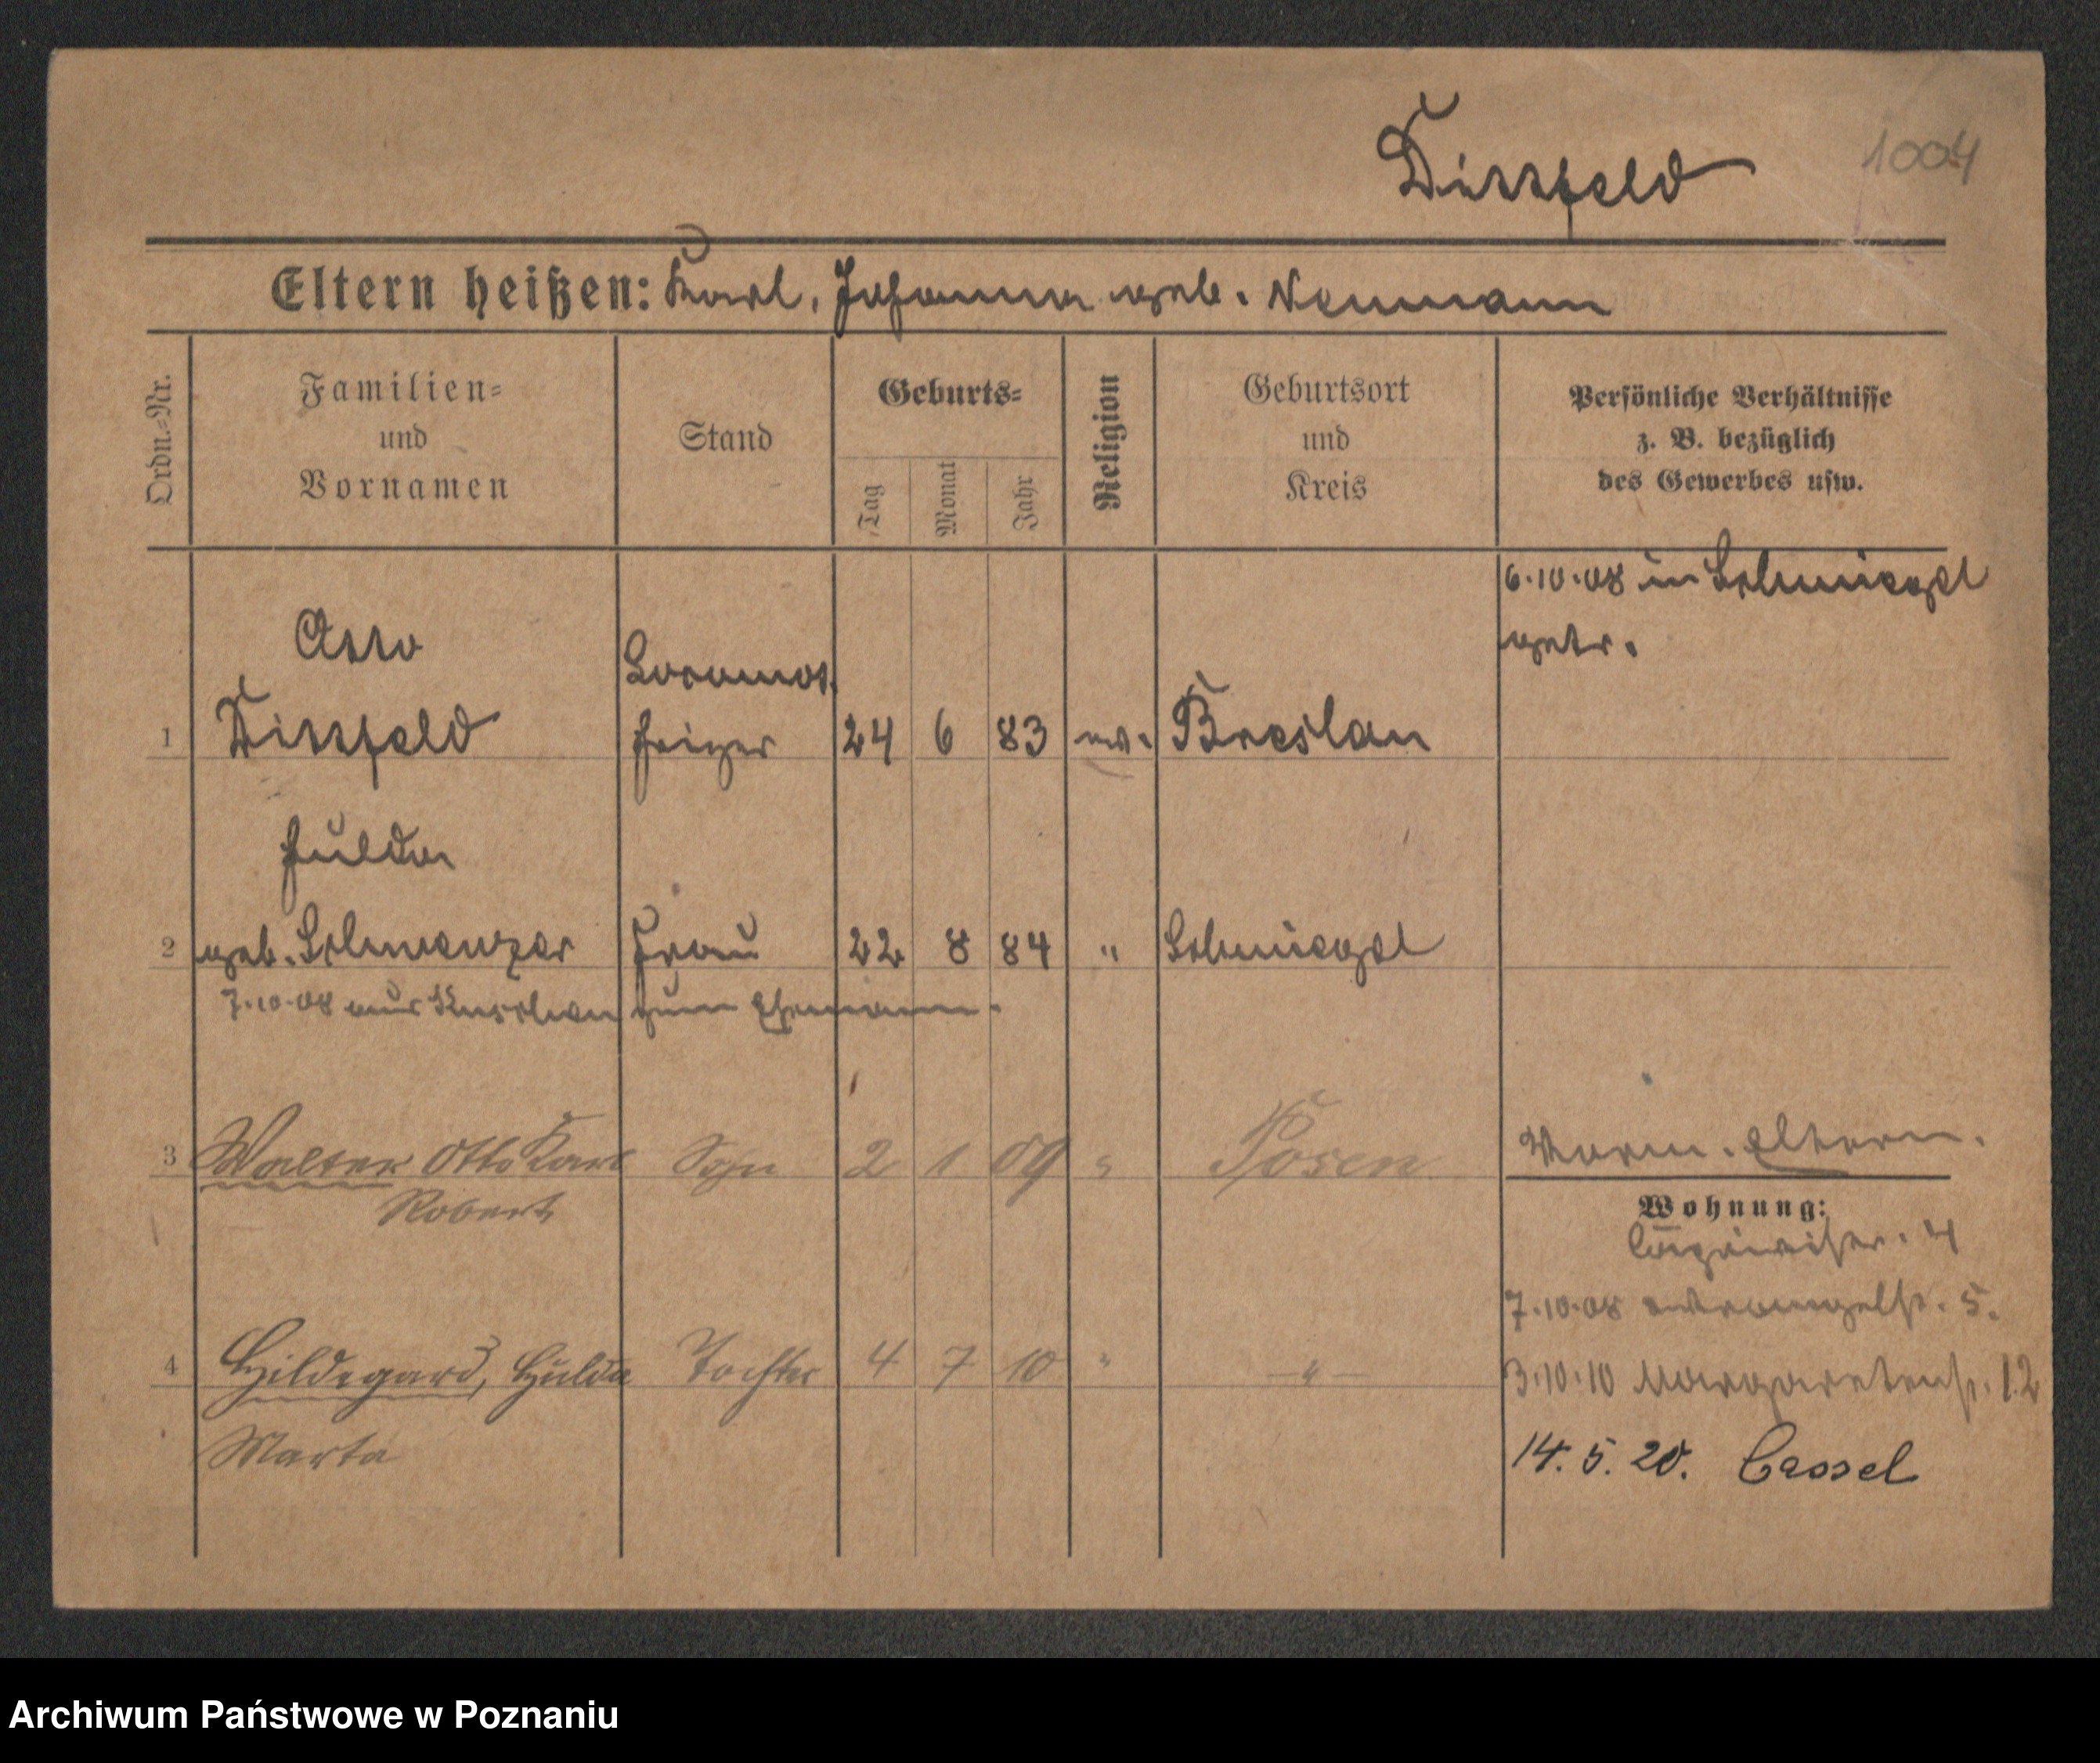 Dittfeld
1004
Eltern heißen: Karl, Johanna geb. Neumann
Ordn.=Nr.
Familien=
und
Vornamen
Stand
Geburts=
Tag
Monat
Jahr
Religion
Geburtsort
und
Kreis
Persönliche Verhältnisse
z. B. bezüglich
des Gewerbes usw.
6.10.08 in Schmiegel
getr.
Otto
Locomot.
1 Dittfeld heizer 24 6 83 ev. Breslau
Hulda
2 geb. Schwenzer Frau 22 8 84 " Schmiegel
7.10.08 aus Kuschen zum Ehemann.
3 Walter Otto Karl Sohn 2 1 09 " Posen
Robert
Eltern.
Wohnung:
4
7.10.08 5.
4 Hildegard, Hulda Tochter 4 7 10 " — " —
Marta
3.10.10 Margaretenstr. 12
14. 5. 20. Cassel
Archiwum Państwowe w Poznaniu